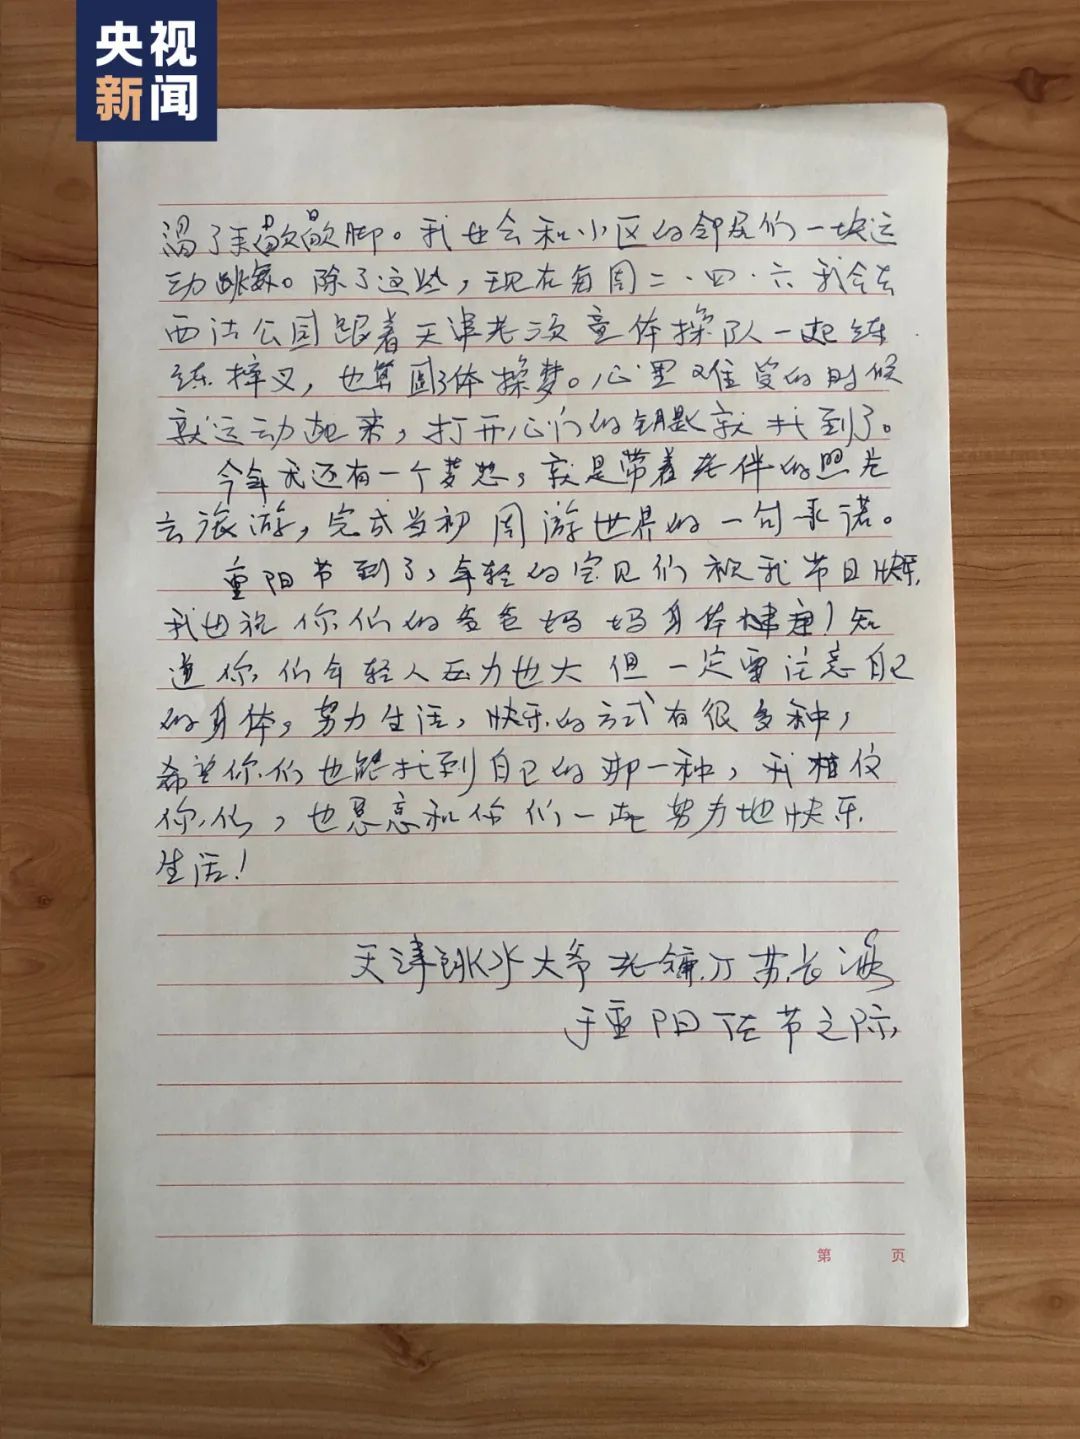 央视
新闻
渴了来歇歇脚。我也会和小区的邻居们一块运
动跳舞。除了这些，现在每周二·四·六我会去
西沽公园跟着天津老顽童体操队一起练
练摔叉，也算圆了体操梦。心里难受的时候
就运动起来，打开心门的钥匙就找到了。
今年我还有一个梦想，就是带着老伴的照片
去旅游，完成当初周游世界的一句承诺。
重阳节到了，年轻的宝贝们祝我节日快乐，
我也祝你们的爸爸妈妈身体健康！知
道你们年轻人压力也大但一定要注意自己
的身体，努力生活，快乐的方式有很多种，
希望你们也能找到自己的那一种，我相信
你们，也愿意和你们一起努力地快乐
生活！
天津跳水大爷老镰刀苏长海
于重阳佳节之际
第 页